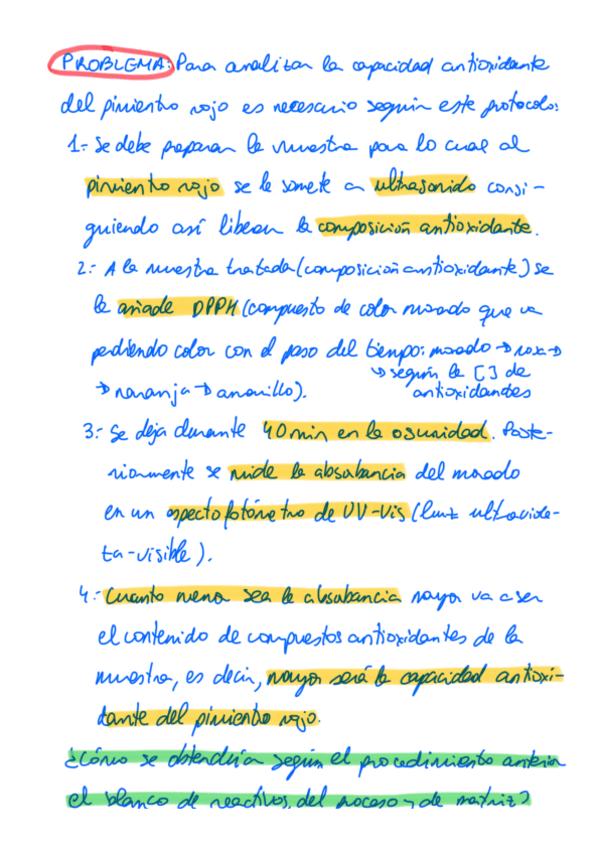 PROBLEMA: Para analizar la capacidad antioxidante
del pimiento rojo es necesario seguir este protocolo:
1.- Se debe preparar la muestra para lo cual al
pimiento rojo se le somete a ultrasonido consi-
guiendo así liberar la composición antioxidante.
2.- A la muestra tratada (composición antioxidante) se
le añade DPPH (compuesto de color morado que va
perdiendo color con el paso del tiempo: morado → rosa →
→ naranja → amarillo).
↳ según la [ ] de
antioxidantes
3.- Se deja durante 40 min en la oscuridad. Poste-
riormente se mide la absorbancia del morado
en un espectofotómetro de UV-Vis (luz ultraviole-
ta-visible).
4.- Cuanto menor sea la absorbancia mayor va a ser
el contenido de compuestos antioxidantes de la
muestra, es decir, mayor será la capacidad antioxi-
dante del pimiento rojo.
¿Cómo se obtendría según el procedimiento anterior
el blanco de reactivos, del proceso y de matriz?